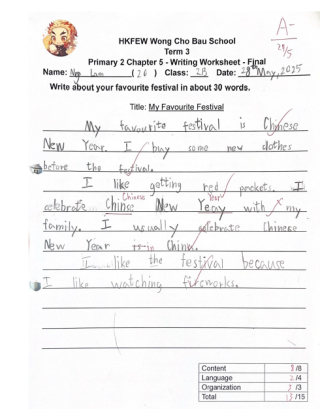 A-
28/5
HKFEW Wong Cho Bau School
Term 3
Primary 2 Chapter 5 - Writing Worksheet - Final
Name: Lam (26) Class: 2B Date: 28th May, 2025
Write about your favourite festival in about 30 words.
Title: My Favourite Festival
My favourite festival is Chinese
New Year. I buy some new clothes
before the festival.
I like getting red pockets. I
Chinese Year
celebrate Chinse New Yeay with my
family. I usually celebrate Chinese
New Year in China.
I like the festival because
I like watching fireworks.
Content /8
Language /4
Organization /3
Total /15